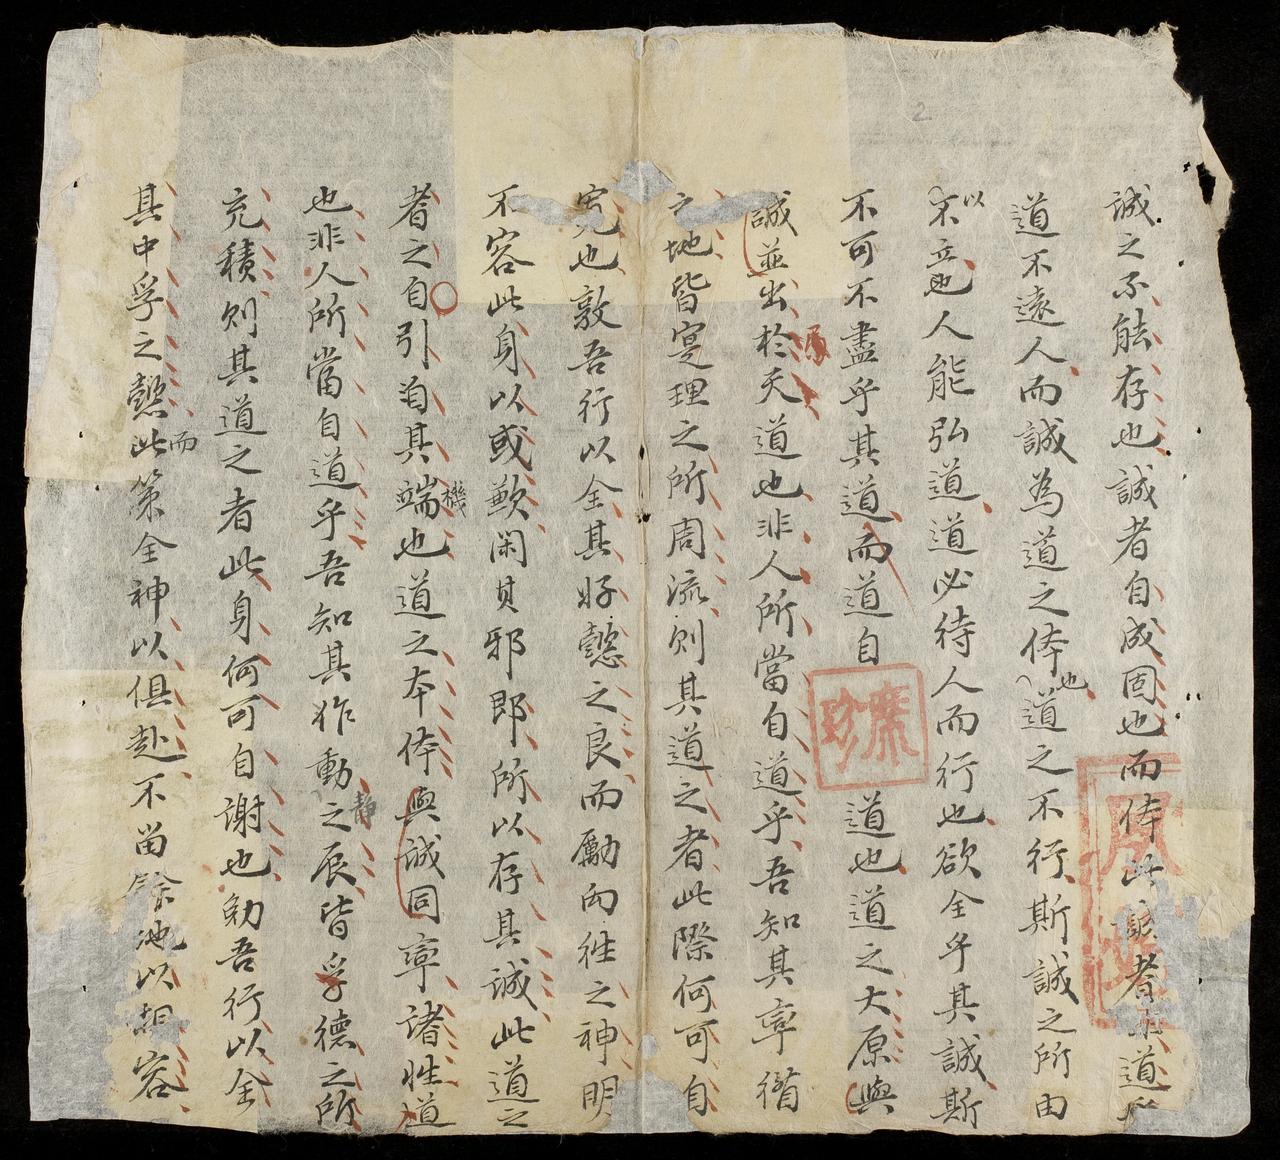 誠之不能存也誠者自成固也而体此誠者道
道不遠人而誠為道之体也道之不行斯誠之所由
以不立也人能弘道道必待人而行也欲全乎其誠斯
不可不盡乎其道而道自道也道之大原與
誠並出於天道也非人所當自道乎吾知其率循
之地皆寔理之所周流則其道之者此際何可自
寬也敦吾行以全其好懿之良而勵向往之神明
不容此身以或歉閑其邪即所以存其誠此道之
者之自引自其端機也道之本体與誠同率諸性道
也非人所當自道乎吾知其作動之辰靜皆孚德之所
充積則其道之者此身何可自謝也勉吾行以全
其中孚之懿此而策全神以俱赴不留餘地以相容
珍藏
2